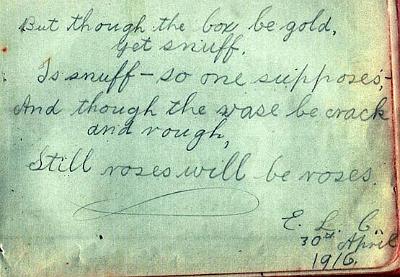 But though the box be gold,
Yet snuff,
Is snuff - so one supposes;-
And though the vase be crack
and rough,
Still roses will be roses.
E. L. C.
30th April
1916.